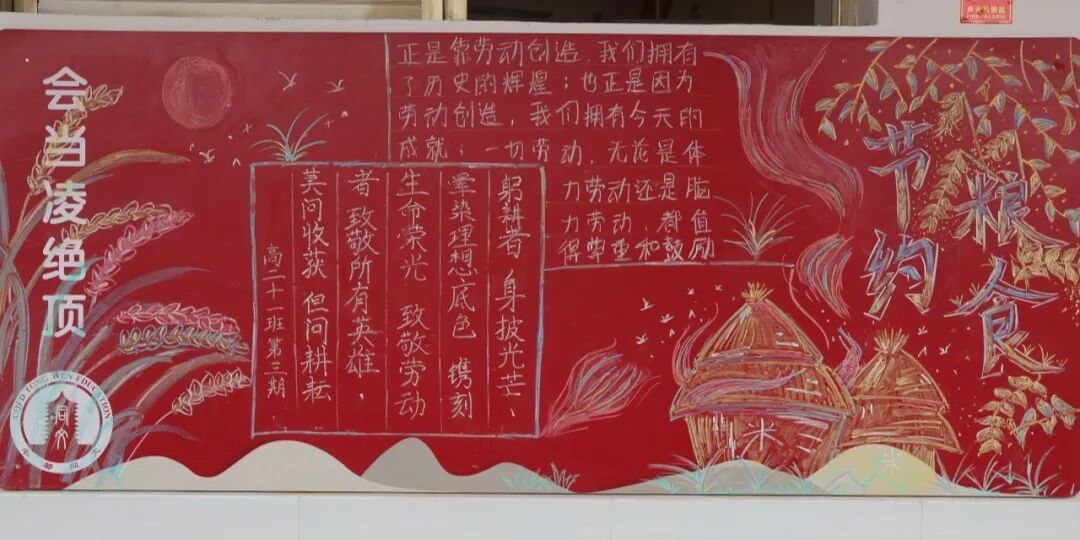 会当凌绝顶
正是靠劳动创造，我们拥有
了历史的辉煌；也正是因为
劳动创造，我们拥有今天的
成就；一切劳动，无论是体
力劳动还是脑
力劳动，都值
得尊重和鼓励
躬耕者 身披光芒、
晕染理想底色 镌刻
生命荣光 致敬劳动
者 致敬所有英雄、
莫问收获 但问耕耘
高二十一班第三期
节约
粮食
米
TONG WEN EDUCATION
FIRE ALARM